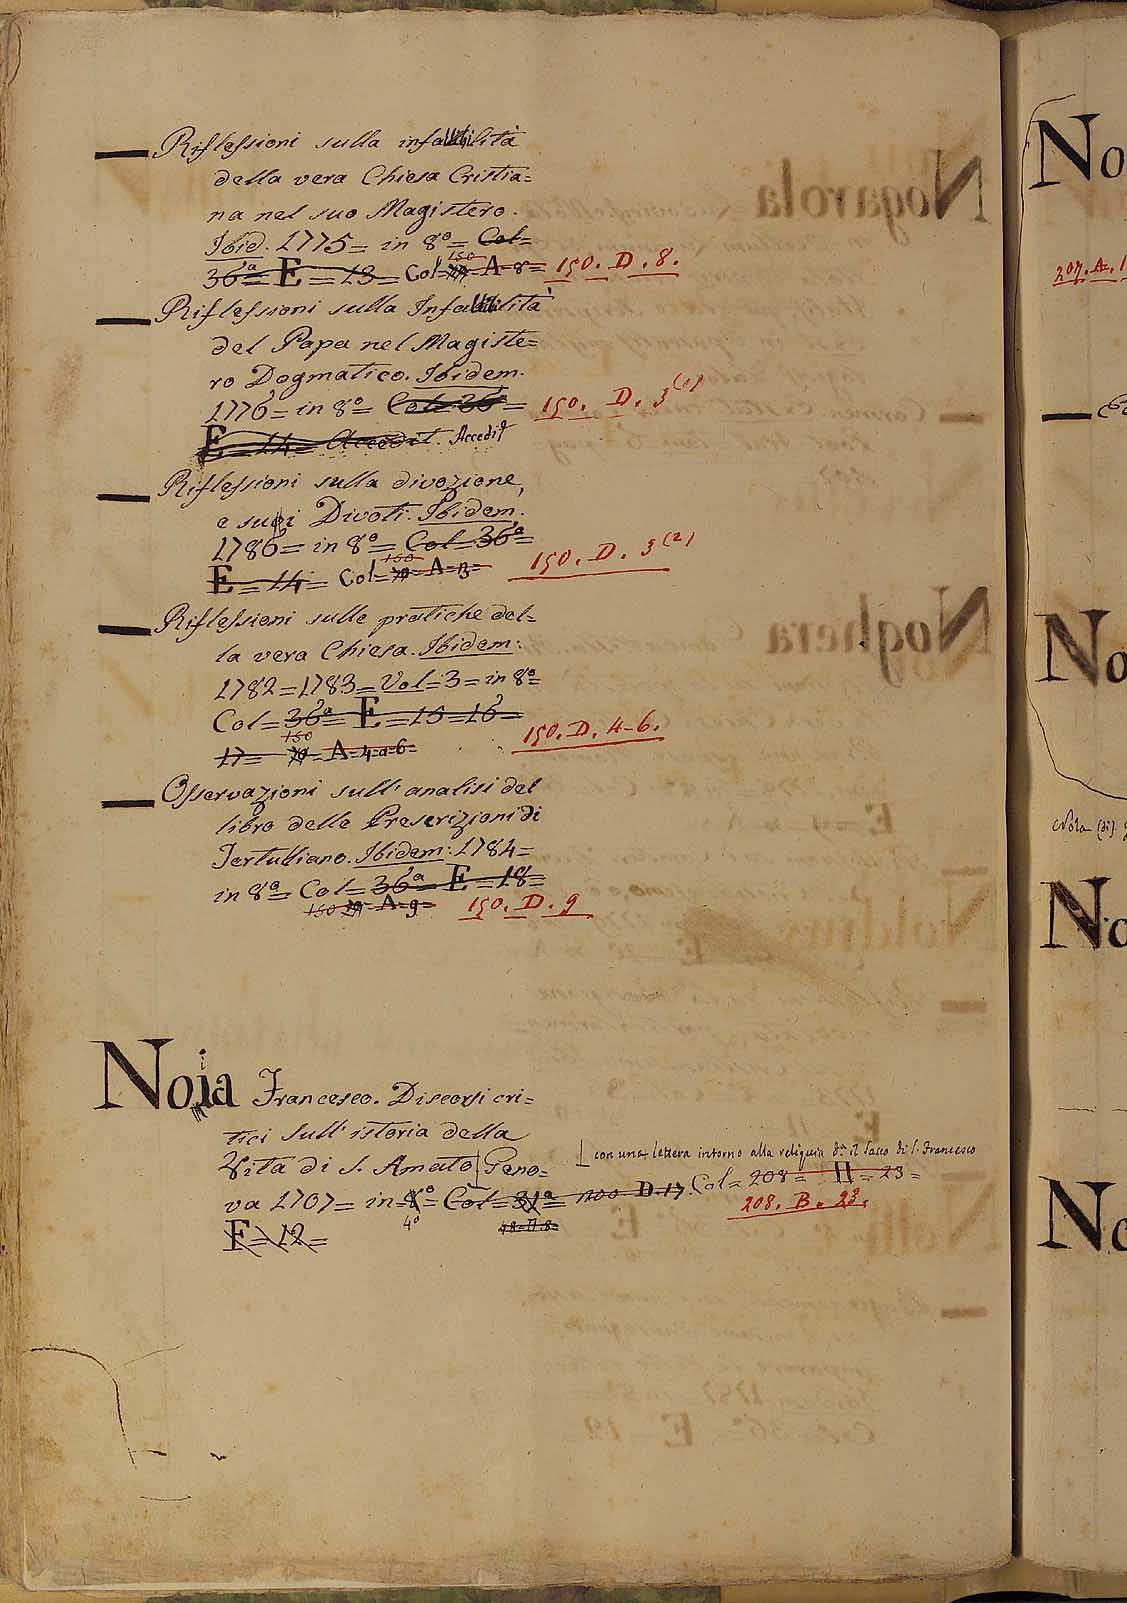 — Riflessioni sulla infallibilità
della vera Chiesa Cristia=
na nel suo Magistero.
Ibid. 1775= in 8º= Col=
36ª= E = 13= Col= 150 A=8= 150. D. 8.
— Riflessioni sulla Infallibilità
del Papa nel Magiste=
ro Dogmatico. Ibidem.
1776= in 8º= Col= 36ª= 150. D. 3(1)
E = 14= Accedit. Accedit
— Riflessioni sulla divozione,
e suoi Divoti. Ibidem.
1786= in 8º= Col= 36ª=
E = 14= Col= 150 A=3= 150. D. 3(2)
— Riflessioni sulle pratiche del=
la vera Chiesa. Ibidem:
1782=1783= Vol=3= in 8º=
Col= 36ª= E =15=16=
17= 150 A=4=a=6= 150. D. 4-6.
— Osservazioni sull' analisi del
libro delle Prescrizioni di
Tertulliano. Ibidem: 1784=
in 8º= Col= 36ª= E =18=
150 A=9= 150. D. 9
Noia Francesco. Discorsi cri=
tici sull' istoria della
Vita di S. Amato, Geno= con una lettera intorno alla reliquia dª il Sacco di S. Francesco
va 1707= in 8º= Col= 31ª= 200 D.17. Col= 208= H=23=
4º 48=D.8= 208. B. 23.
F=12=
No
207. A. 1
No
Nola (di)
No
No